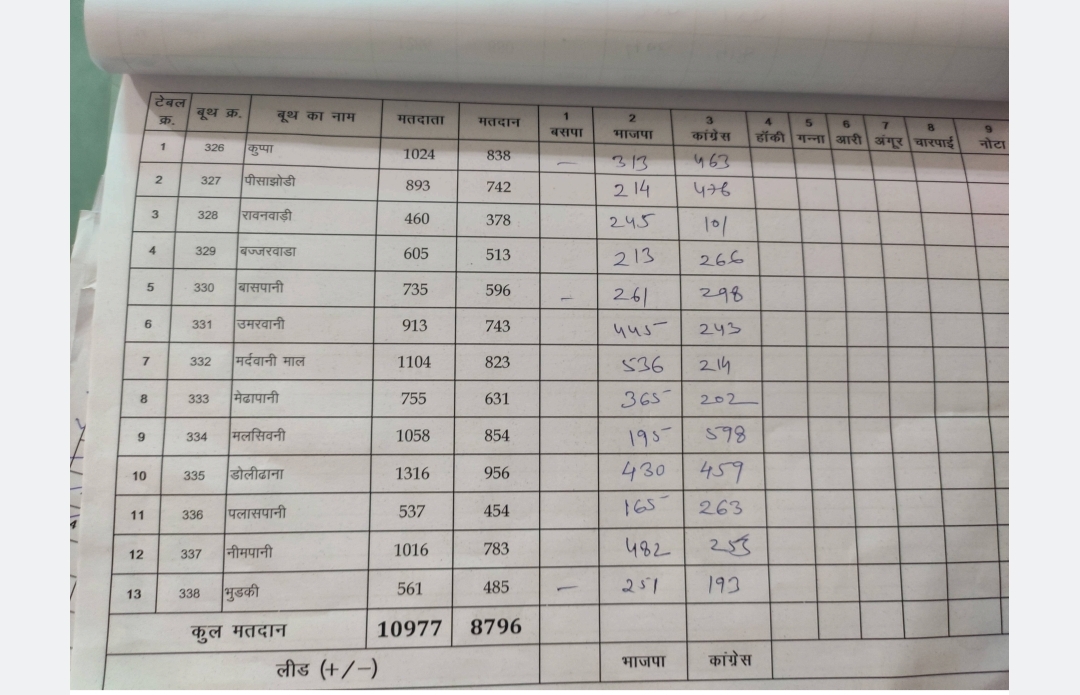 टेबल क्र. बूथ क्र. बूथ का नाम मतदाता मतदान 1 बसपा 2 भाजपा 3 कांग्रेस 4 हॉकी 5 गन्ना 6 आरी 7 अंगूर 8 चारपाई 9 नोटा
1 326 कुप्पा 1024 838 – 313 463
2 327 पीसाझोडी 893 742 214 476
3 328 रावनवाड़ी 460 378 245 101
4 329 बज्जरवाडा 605 513 213 266
5 330 बासपानी 735 596 – 261 298
6 331 उमरवानी 913 743 445 243
7 332 मर्दवानी माल 1104 823 536 214
8 333 मेढापानी 755 631 365 202
9 334 मलसिवनी 1058 854 195 598
10 335 डोलीढाना 1316 956 430 459
11 336 पलासपानी 537 454 165 263
12 337 नीमपानी 1016 783 482 253
13 338 भुडकी 561 485 – 251 193
कुल मतदान 10977 8796
लीड (+/–) भाजपा कांग्रेस